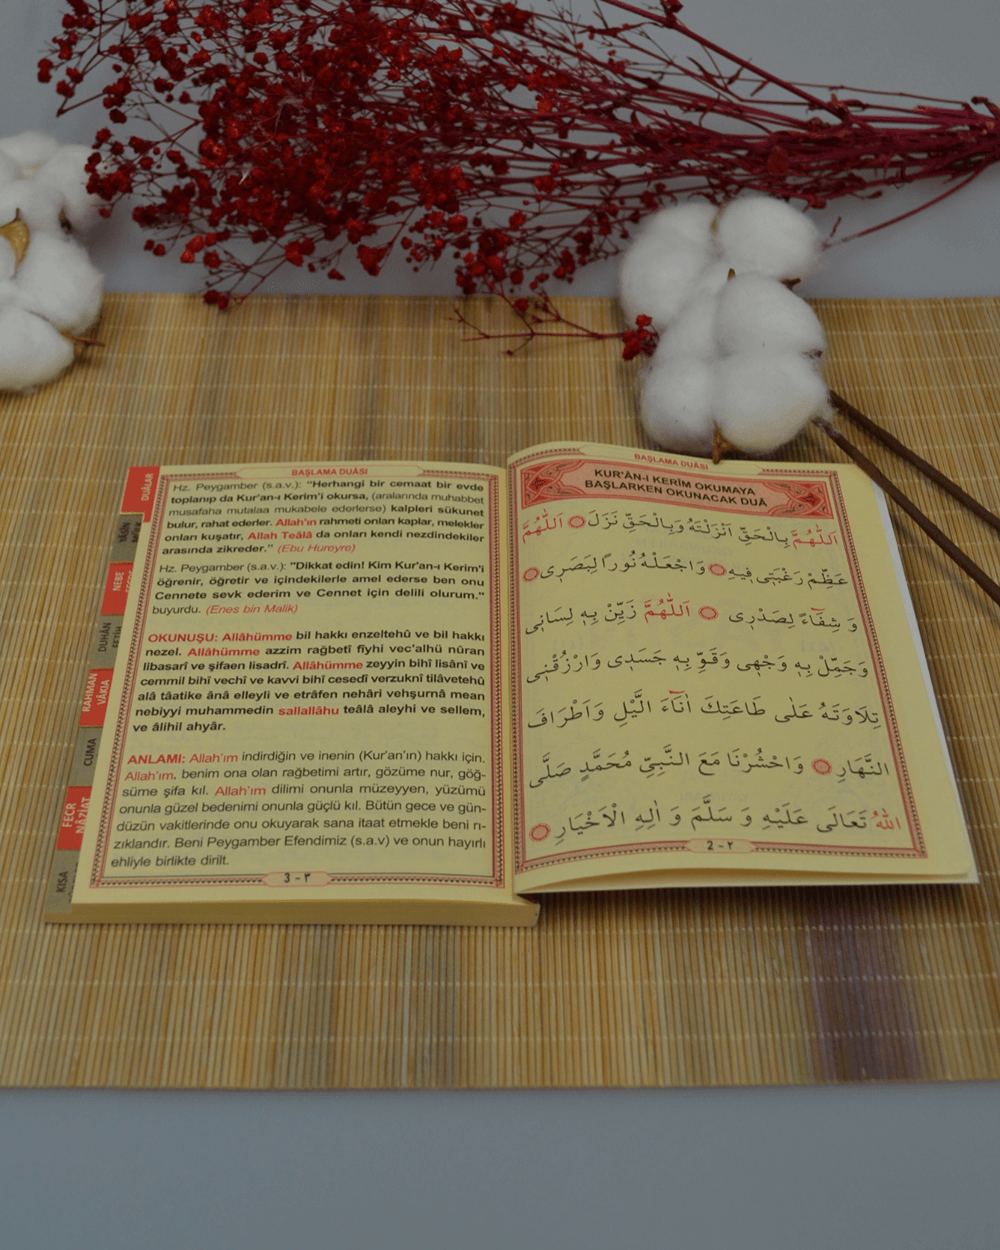 BAŞLAMA DUÂSI
KUR'ÂN-I KERÎM OKUMAYA
BAŞLARKEN OKUNACAK DUÂ
اَللّٰهُمَّ بِالْحَقِّ اَنْزَلْتَهُ وَبِالْحَقِّ نَزَلَ اَللّٰهُمَّ
عَظِّمْ رَغْبَتِى فِيهِ وَاجْعَلْهُ نُوراً لِبَصَرِى
وَ شِفَٓاءً لِصَدْرِى اَللّٰهُمَّ زَيِّنْ بِهِ لِسَانِى
وَجَمِّلْ بِهِ وَجْهِى وَقَوِّ بِهِ جَسَدِى وَارْزُقْنِى
تِلَاوَتَهُ عَلٰى طَاعَتِكَ اٰنَٓاءَ الَّيْلِ وَاَطْرَافَ
النَّهَارِ وَاحْشُرْنَا مَعَ النَّبِيِّ مُحَمَّدٍ صَلَّى
اللّٰهُ تَعَالَى عَلَيْهِ وَ سَلَّمَ وَ اٰلِهِ الْاَخْيَارِ
2 - ٢
BAŞLAMA DUÂSI
Hz. Peygamber (s.a.v.): "Herhangi bir cemaat bir evde
toplanıp da Kur'an-ı Kerim'i okursa, (aralarında muhabbet
musafaha mutalaa mukabele ederlerse) kalpleri sükunet
bulur, rahat ederler. Allah'ın rahmeti onları kaplar, melekler
onları kuşatır, Allah Teâlâ da onları kendi nezdindekiler
arasında zikreder." (Ebu Hureyre)
Hz. Peygamber (s.a.v.): "Dikkat edin! Kim Kur'an-ı Kerim'i
öğrenir, öğretir ve içindekilerle amel ederse ben onu
Cennete sevk ederim ve Cennet için delili olurum."
buyurdu. (Enes bin Malik)
OKUNUŞU: Allâhümme bil hakkı enzeltehû ve bil hakkı
nezel. Allâhümme azzim rağbetî fîyhi vec'alhü nûran
libasarî ve şifaen lisadrî. Allâhümme zeyyin bihî lisânî ve
cemmil bihî vechî ve kavvi bihî cesedî verzuknî tilâvetehû
alâ tâatike ânâ elleyli ve etrâfen nehâri vehşurnâ mean
nebiyyi muhammedin sallallâhu teâlâ aleyhi ve sellem,
ve âlihil ahyâr.
ANLAMI: Allah'ım indirdiğin ve inenin (Kur'an'ın) hakkı için.
Allah'ım. benim ona olan rağbetimi artır, gözüme nur, göğ-
süme şifa kıl. Allah'ım dilimi onunla müzeyyen, yüzümü
onunla güzel bedenimi onunla güçlü kıl. Bütün gece ve gün-
düzün vakitlerinde onu okuyarak sana itaat etmekle beni rı-
zıklandır. Beni Peygamber Efendimiz (s.a.v) ve onun hayırlı
ehliyle birlikte dirilt.
3 - ٣
DUÂLAR
YÂSÎN
NEBE
DUHÂN
FETİH
RAHMAN
VÂKIA
CUMA
FECR
NÂZİAT
KISA